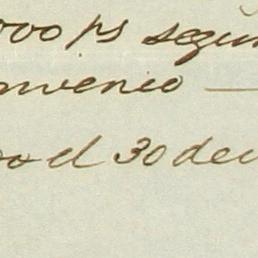 000 ps segun
nvenio
el 30 de